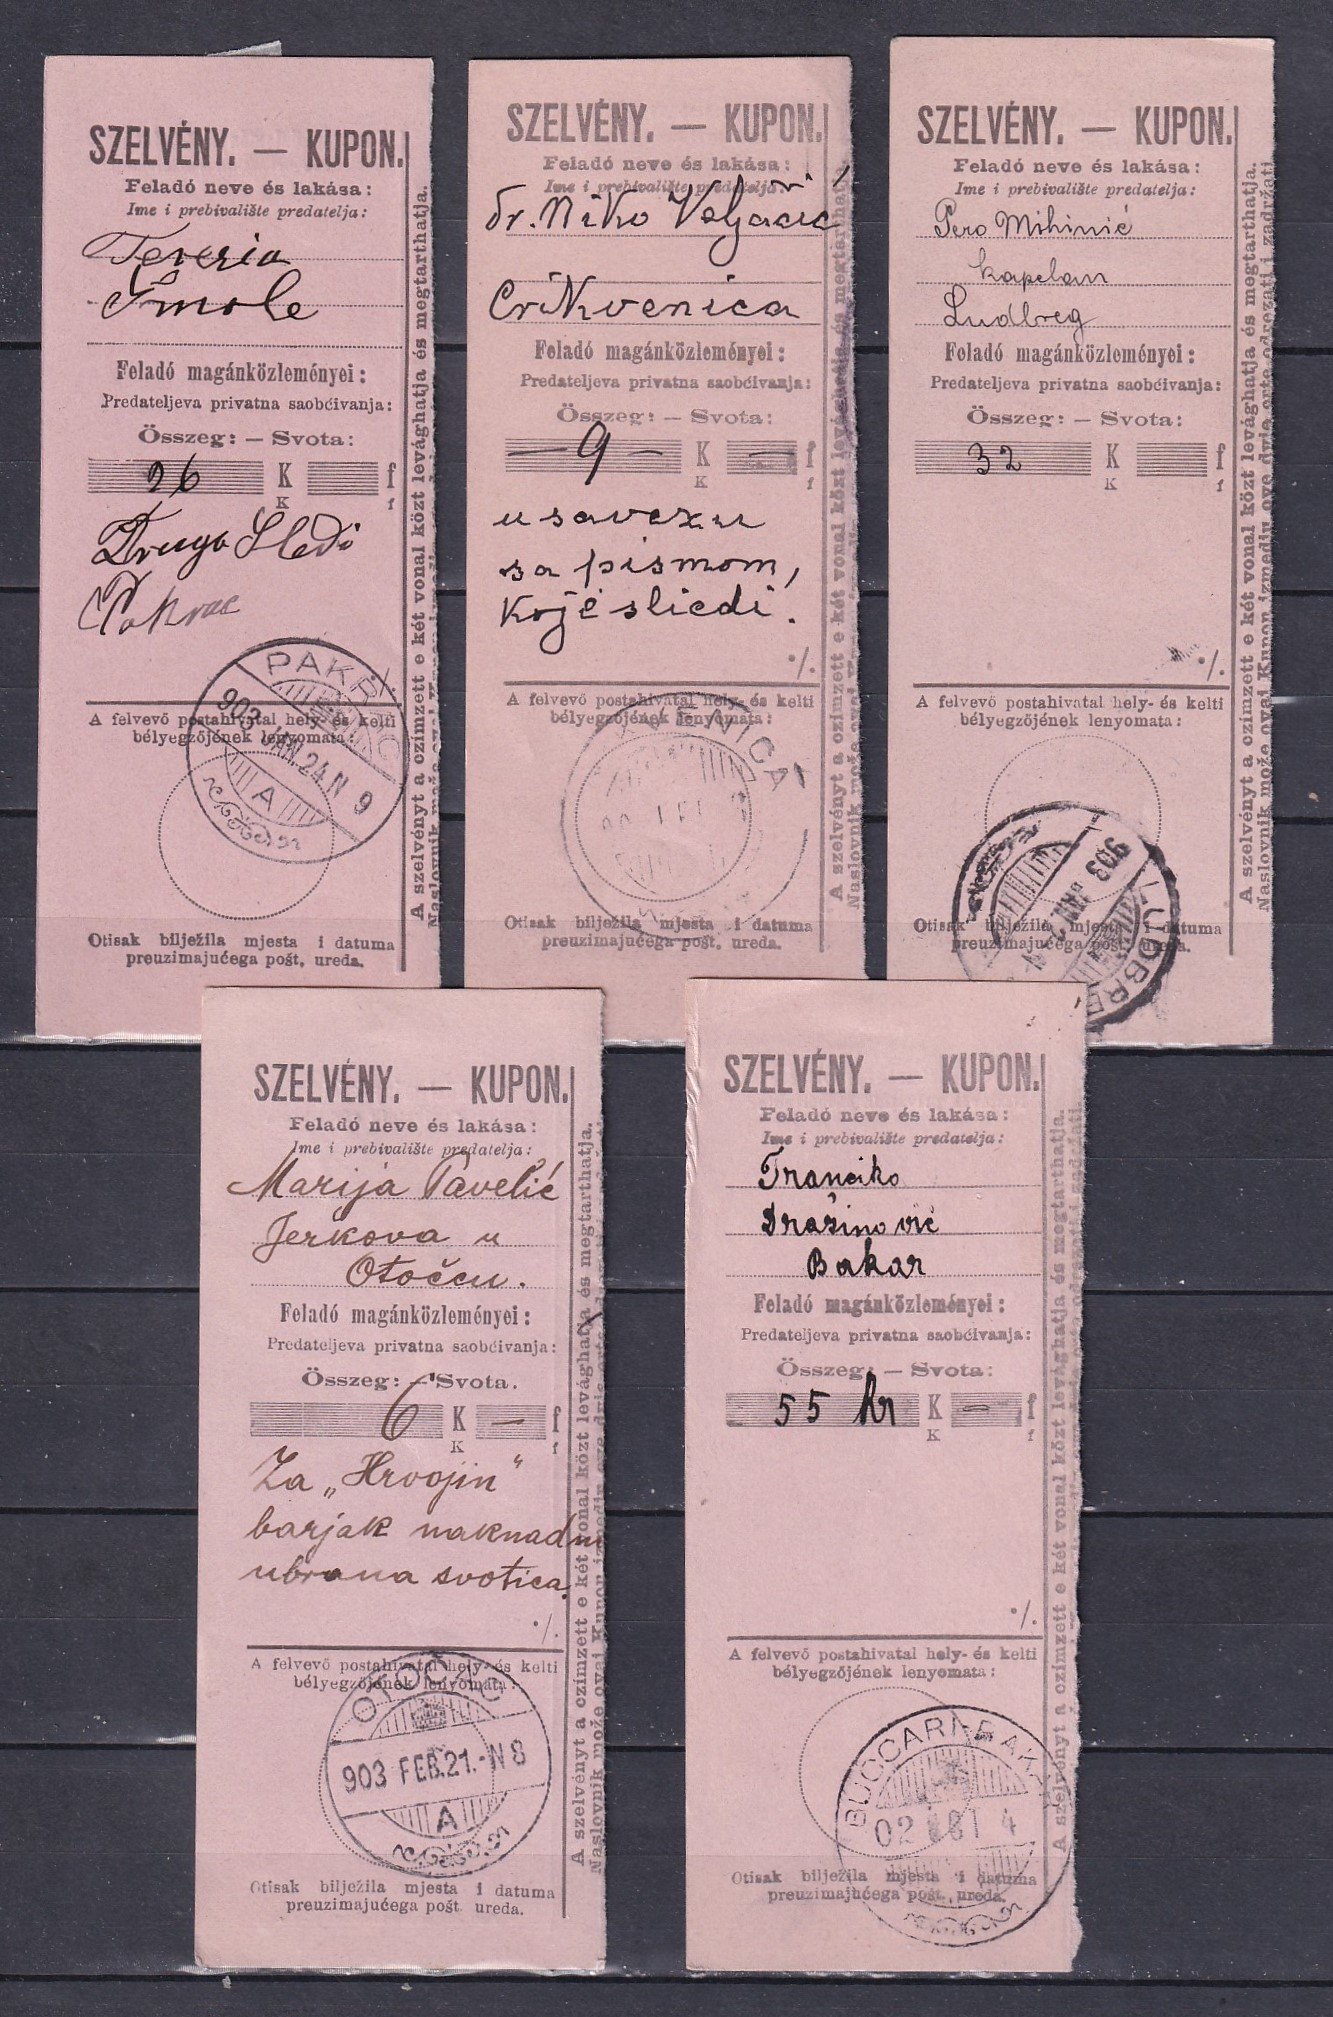 SZELVÉNY. — KUPON.
Feladó neve és lakása:
Ime i prebivalište predatelja:
Smole
Feladó magánközleményei:
Predateljeva privatna saobćivanja:
Összeg: — Svota:
26 K f
K f
Druga sledi
Pakrac
PAKRAC
903 JAN. 24. N 9
A
A felvevő postahivatal hely- és kelti
bélyegzőjének lenyomata:
Otisak bilježila mjesta i datuma
preuzimajućega pošt. ureda.
A szelvényt a czímzett e két vonal közt levághatja és megtarthatja.
SZELVÉNY. — KUPON.
Feladó neve és lakása:
Ime i prebivalište predatelja
dr. Niko Veljačić
Crikvenica
Feladó magánközleményei:
Predateljeva privatna saobćivanja:
Összeg: — Svota:
— 9 — K — f
K f
u savezu
sa pismom,
koje sliedi.
·/.
A felvevő postahivatal hely- és kelti
bélyegzőjének lenyomata:
Otisak bilježila mjesta i datuma
preuzimajućega pošt. ureda.
A szelvényt a czímzett e két vonal közt levághatja és megtarthatja.
SZELVÉNY. — KUPON.
Feladó neve és lakása:
Ime i prebivalište predatelja:
Pero Mihinić
kapelan
Ludbreg
Feladó magánközleményei:
Predateljeva privatna saobćivanja:
Összeg: — Svota:
32 K f
K f
·/.
A felvevő postahivatal hely- és kelti
bélyegzőjének lenyomata:
LUDBRE
903 JAN. 2
Otisak bilježila mjesta i datuma
preuzimajućega pošt. ureda.
A szelvényt a czímzett e két vonal közt levághatja és megtarthatja.
Naslovnik može ovaj Kupon izmedju ove dvie crte odrezati i zadržati
SZELVÉNY. — KUPON.
Feladó neve és lakása:
Ime i prebivalište predatelja:
Marija Pavelić
Jerkova u
Otočcu.
Feladó magánközleményei:
Predateljeva privatna saobćivanja:
Összeg: — Svota.
6 K — f
K f
Za „Hrvojin“
barjak naknadno
ubrana svotica.
·/.
A felvevő postahivatal hely- és kelti
bélyegzőjének lenyomata:
OTOČAC
903 FEB. 21. - N 8
A
Otisak bilježila mjesta i datuma
preuzimajućega pošt. ureda.
A szelvényt a czímzett e két vonal közt levághatja és megtarthatja.
SZELVÉNY. — KUPON.
Feladó neve és lakása:
Ime i prebivalište predatelja:
Franciko
Dražinović
Bakar
Feladó magánközleményei:
Predateljeva privatna saobćivanja:
Összeg: — Svota:
55 kr K — f
K f
·/.
A felvevő postahivatal hely- és kelti
bélyegzőjének lenyomata:
BUCCARI-BAKA
02 4
Otisak bilježila mjesta i datuma
preuzimajućega pošt. ureda.
A szelvényt a czímzett e két vonal közt levághatja és megtarthatja.